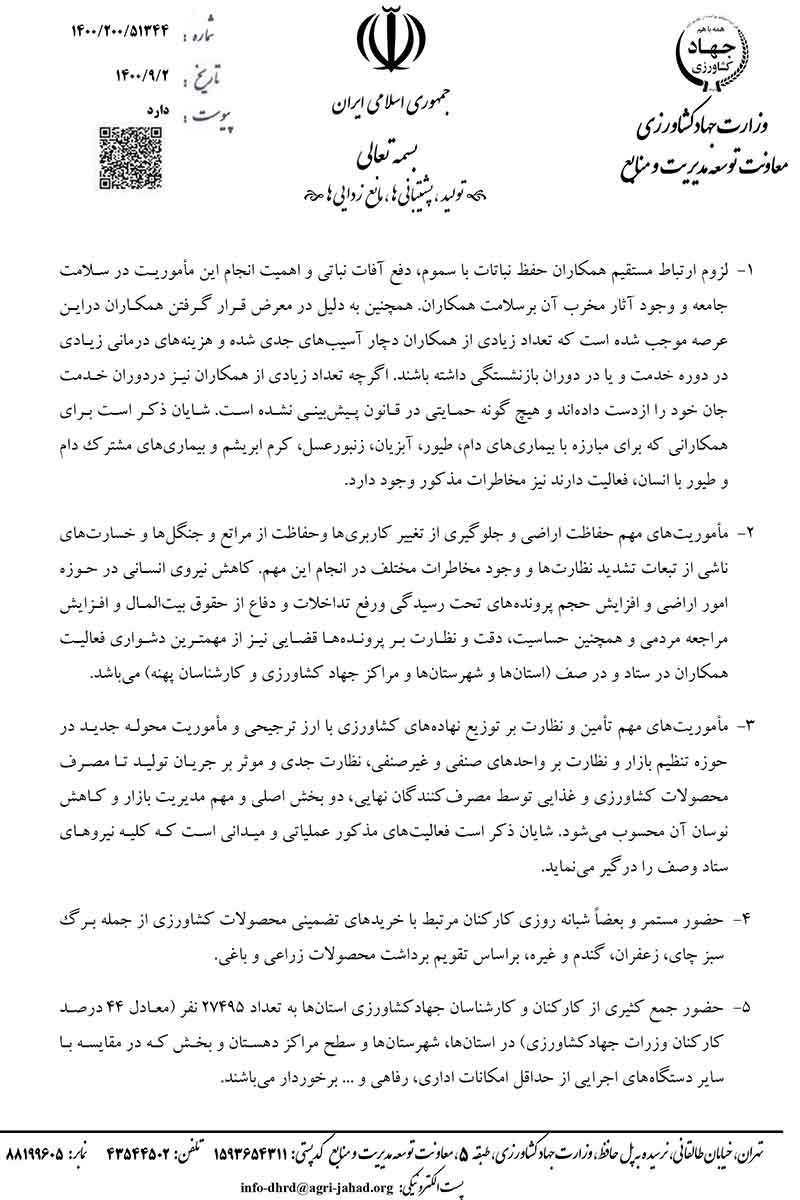 همه با هم
جهاد
کشاورزی
وزارت جهاد کشاورزی
معاونت توسعه مدیریت و منابع
جمهوری اسلامی ایران
بسمه تعالی
تولید، پشتیبانی‌ها، مانع زدایی‌ها
شماره : ۱۴۰۰/۲۰۰/۵۱۳۴۴
تاریخ : ۱۴۰۰/۹/۲
پیوست : دارد
۱- لزوم ارتباط مستقیم همکاران حفظ نباتات با سموم، دفع آفات نباتی و اهمیت انجام این مأموریت در سلامت
جامعه و وجود آثار مخرب آن برسلامت همکاران. همچنین به دلیل در معرض قرار گرفتن همکاران دراین
عرصه موجب شده است که تعداد زیادی از همکاران دچار آسیب‌های جدی شده و هزینه‌های درمانی زیادی
در دوره خدمت و یا در دوران بازنشستگی داشته باشند. اگرچه تعداد زیادی از همکاران نیز دردوران خدمت
جان خود را ازدست داده‌اند و هیچ گونه حمایتی در قانون پیش‌بینی نشده است. شایان ذکر است برای
همکارانی که برای مبارزه با بیماری‌های دام، طیور، آبزیان، زنبورعسل، کرم ابریشم و بیماری‌های مشترک دام
و طیور با انسان، فعالیت دارند نیز مخاطرات مذکور وجود دارد.
۲- مأموریت‌های مهم حفاظت اراضی و جلوگیری از تغییر کاربری‌ها وحفاظت از مراتع و جنگل‌ها و خسارت‌های
ناشی از تبعات تشدید نظارت‌ها و وجود مخاطرات مختلف در انجام این مهم. کاهش نیروی انسانی در حوزه
امور اراضی و افزایش حجم پرونده‌های تحت رسیدگی ورفع تداخلات و دفاع از حقوق بیت‌المال و افزایش
مراجعه مردمی و همچنین حساسیت، دقت و نظارت بر پرونده‌ها قضایی نیز از مهمترین دشواری فعالیت
همکاران در ستاد و در صف (استان‌ها و شهرستان‌ها و مراکز جهاد کشاورزی و کارشناسان پهنه) می‌باشد.
۳- مأموریت‌های مهم تأمین و نظارت بر توزیع نهاده‌های کشاورزی با ارز ترجیحی و مأموریت محوله جدید در
حوزه تنظیم بازار و نظارت بر واحدهای صنفی و غیرصنفی، نظارت جدی و موثر بر جریان تولید تا مصرف
محصولات کشاورزی و غذایی توسط مصرف‌کنندگان نهایی، دو بخش اصلی و مهم مدیریت بازار و کاهش
نوسان آن محسوب می‌شود. شایان ذکر است فعالیت‌های مذکور عملیاتی و میدانی است که کلیه نیروهای
ستاد وصف را درگیر می‌نماید.
۴- حضور مستمر و بعضاً شبانه روزی کارکنان مرتبط با خریدهای تضمینی محصولات کشاورزی از جمله برگ
سبز چای، زعفران، گندم و غیره، براساس تقویم برداشت محصولات زراعی و باغی.
۵- حضور جمع کثیری از کارکنان و کارشناسان جهادکشاورزی استان‌ها به تعداد ۲۷۴۹۵ نفر (معادل ۴۴ درصد
کارکنان وزرات جهادکشاورزی) در استان‌ها، شهرستان‌ها و سطح مراکز دهستان و بخش که در مقایسه با
سایر دستگاه‌های اجرایی از حداقل امکانات اداری، رفاهی و ... برخوردار می‌باشند.
تهران، خیابان طالقانی، نرسیده به پل حافظ، وزارت جهاد کشاورزی، طبقه ۵، معاونت توسعه مدیریت و منابع کد پستی: ۱۵۹۳۶۵۴۳۱۱ تلفن: ۴۳۵۴۴۵۰۲ نمابر: ۸۸۱۹۹۶۰۵
پست الکترونیکی: info-dhrd@agri-jahad.org